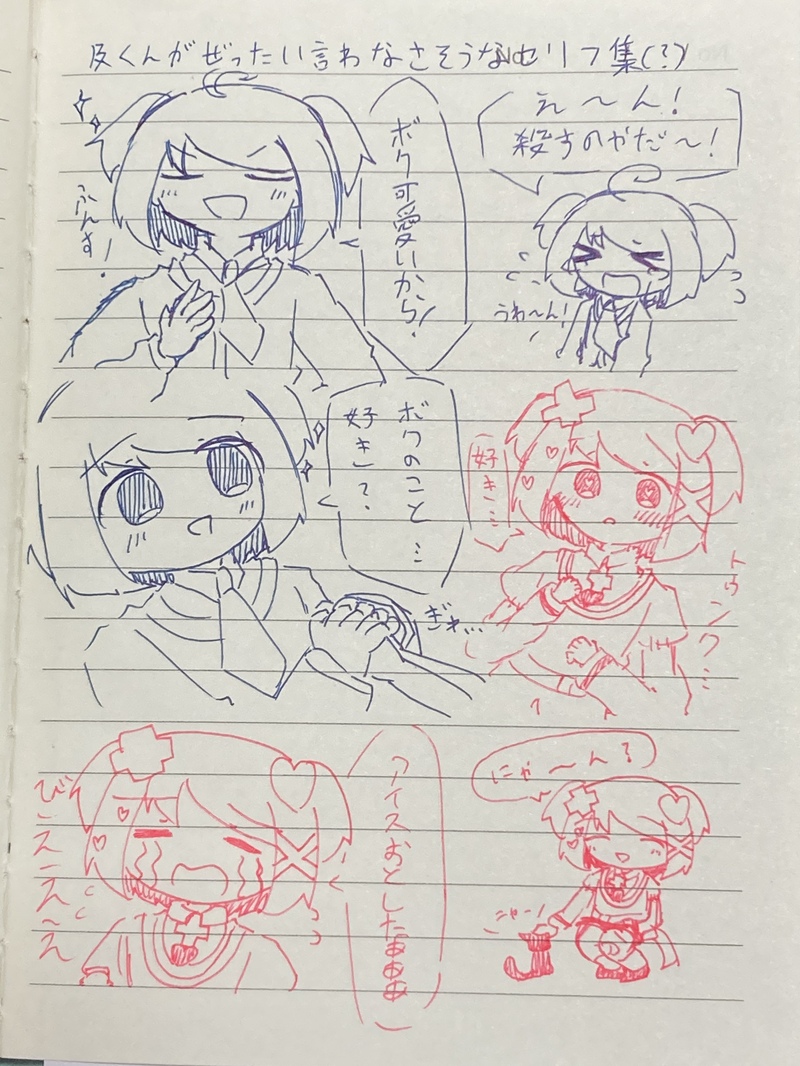 及くんがぜったい言わなさそうなセリフ集(?)
ボク可愛いから!
ふんす!
え～ん!
殺すのやだ～!
うわ～ん!
ボクのこと…
好き?
ぎゅ…
好き…
トゥンク…
アイスおとしたぁぁぁ
びえええええ
にゃ～ん?
にゃー!